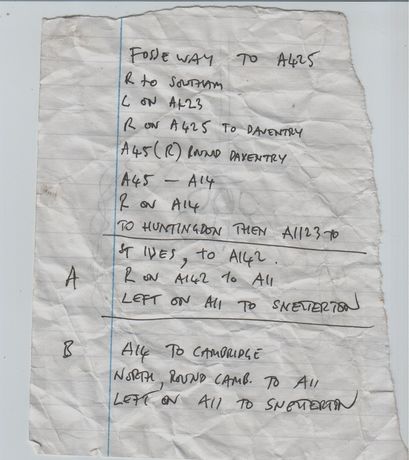 FOSSE WAY TO A425
R to SOUTHAM
L ON A423
R ON A425 TO DAVENTRY
A45 (R) ROUND DAVENTRY
A45 — A14
R ON A14
TO HUNTINGDON THEN A1123 TO
St IVES, TO A142.
A R ON A142 TO A11
LEFT ON A11 TO SNETTERTON
B A14 TO CAMBRIDGE
NORTH, ROUND CAMB. TO A11
LEFT ON A11 TO SNETTERTON